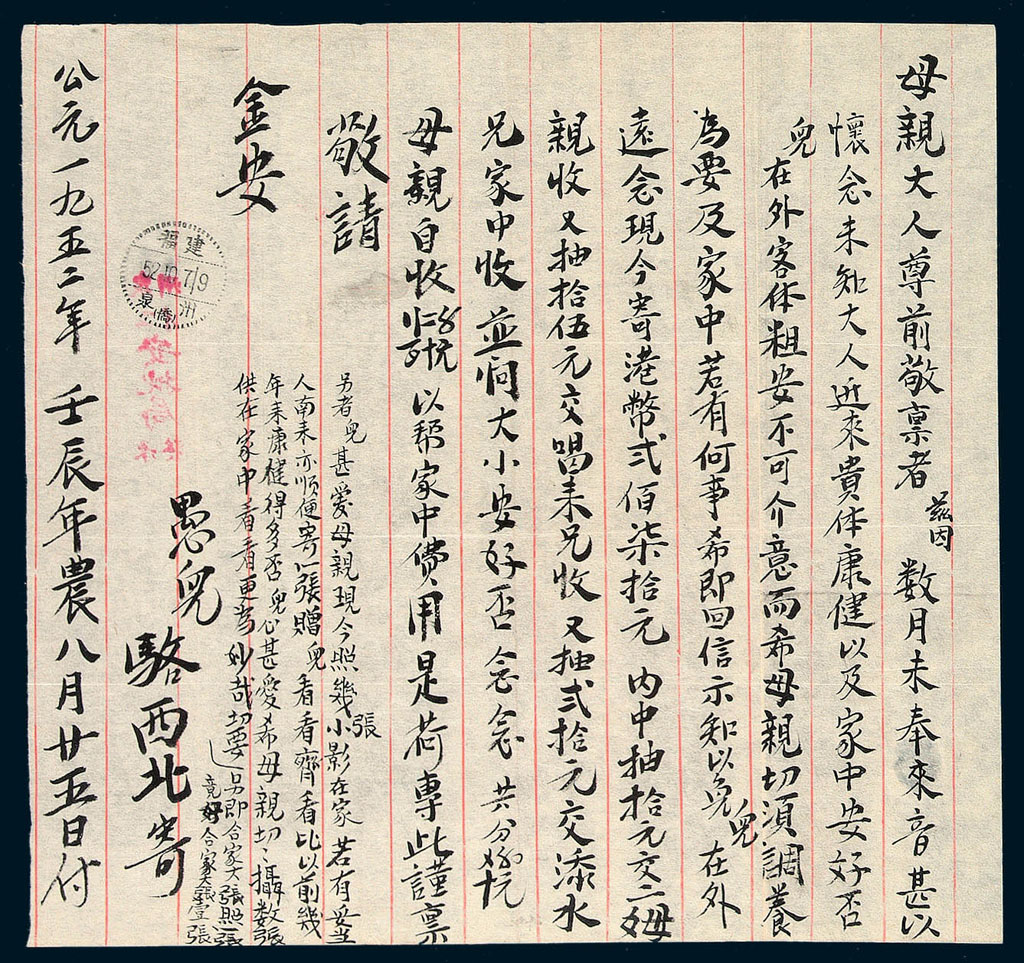 母親大人尊前敬禀者 茲因 数月未奉來音甚以
懷念未知大人近來貴体康健以及家中安好否
兒在外客体粗安不可介意而希母親切須調養
為要及家中若有何事希即回信示知以免兒在外
遠念現今寄港幣弍佰柒拾元 内中抽拾元交二姆
親收又抽拾伍元交唱耒兄收又抽弍拾元交添水
兄家中收並问大小安好否念念 共分
母親自收 以帮家中費用是荷專此謹禀
敬請
金安
另者兒甚愛母親現今照幾張小影在家若有妥当
人南耒亦順便寄一張贈兒看看齊看比以前幾
年耒康健得多否兒心甚愛希母親切〻攝数張
供在家中看看更為妙哉切要
另即合家大張照一張
合家大張壹張
愚兒 駱西北寄
公元一九五二年 壬辰年農八月廿五日付
福建
52.10.7/9
泉(僑)州